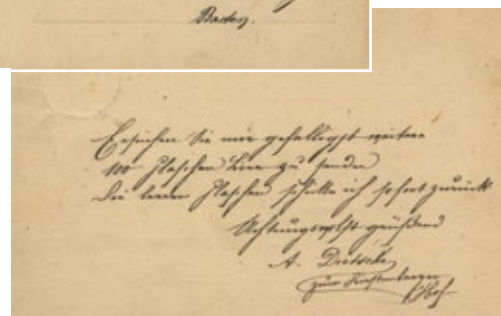 Baden.
Ersuche Sie mir gefälligst weitere
100 Flaschen Bier zu senden
Die leeren Flaschen schicke ich sofort zurück
Achtungsvollst grüßend
A. Dietsche
zum
Hof